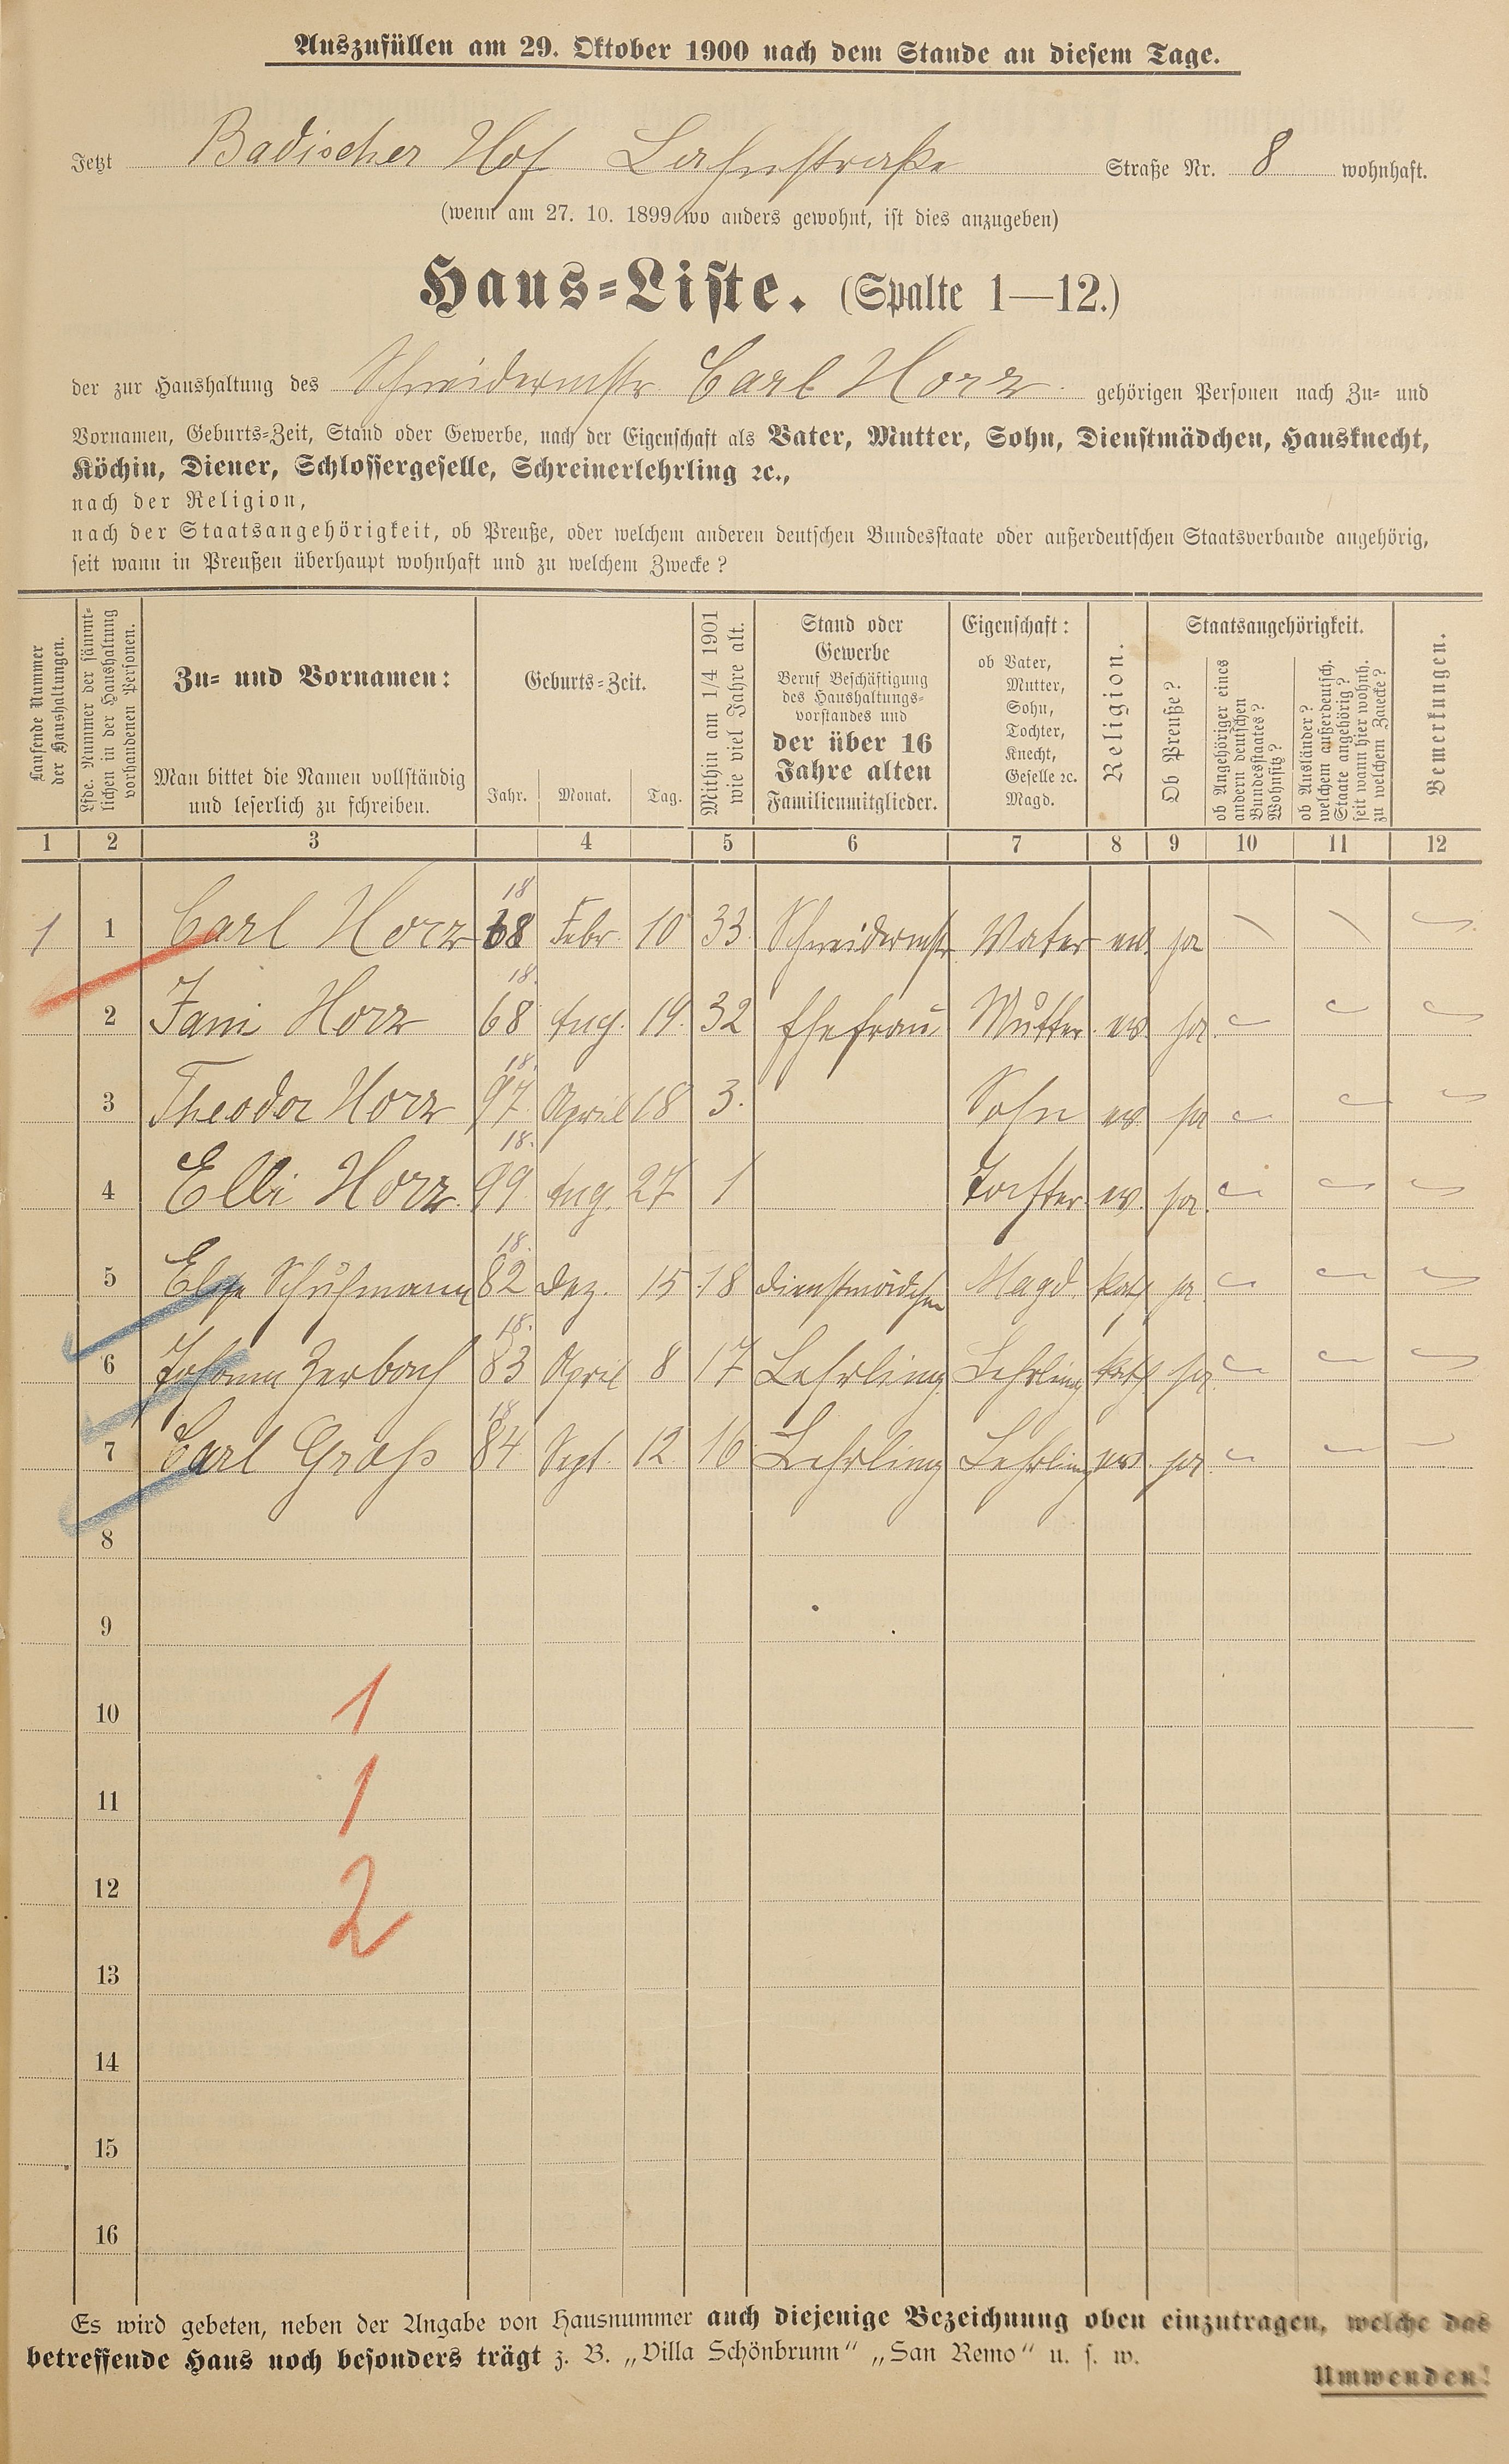 Auszufüllen am 29. Oktober 1900 nach dem Stande an diesem Tage.
Jetzt Badischer Hof Lahnstraße Straße Nr. 8 wohnhaft.
(wenn am 27. 10. 1899 wo anders gewohnt, ist dies anzugeben)
Haus-Liste. (Spalte 1—12.)
der zur Haushaltung des Schneidermstr Carl Horz gehörigen Personen nach Zu- und
Vornamen, Geburts-Zeit, Stand oder Gewerbe, nach der Eigenschaft als Vater, Mutter, Sohn, Dienstmädchen, Hausknecht,
Köchin, Diener, Schlossergeselle, Schreinerlehrling ꝛc.,
nach der Religion,
nach der Staatsangehörigkeit, ob Preuße, oder welchem anderen deutschen Bundesstaate oder außerdeutschen Staatsverbande angehörig,
seit wann in Preußen überhaupt wohnhaft und zu welchem Zwecke?
Laufende Nummer
der Haushaltungen.
Lfde. Nummer der sämmt-
lichen in der Haushaltung
vorhandenen Personen.
Zu- und Vornamen:
Man bittet die Namen vollständig
und leserlich zu schreiben.
Geburts-Zeit.
Jahr. Monat. Tag.
Mithin am 1/4 1901
wie viel Jahre alt.
Stand oder
Gewerbe
Beruf Beschäftigung
des Haushaltungs-
vorstandes und
der über 16
Jahre alten
Familienmitglieder.
Eigenschaft:
ob Vater,
Mutter,
Sohn,
Tochter,
Knecht,
Geselle ꝛc.
Magd.
Religion.
Staatsangehörigkeit.
Ob Preuße?
ob Angehöriger eines
andern deutschen
Bundesstaates?
Wohnsitz?
ob Ausländer?
welchem außerdeutsch.
Staate angehörig?
seit wann hier wohnh.
zu welchem Zwecke?
Bemerkungen.
1 2 3 4 5 6 7 8 9 10 11 12
1 1 Carl Horz 1868 Febr. 10 33 Schneidermstr Vater ev. ja
2 Fani Horz 18. 68 Aug. 19. 32 Ehefrau Mutter ev ja
3 Theodor Horz 18. 97 April 18 3. Sohn ev. ja
4 Elli Horz 18. 99 Aug. 27 1 Tochter ev. ja.
5 Schuhmann 18. 82 Dez. 15 18 Dienstmädchen Magd. kath ja
6 Johann Zerbach 18. 83 April 8 17 Lehrling Lehrling kath ja
7 Carl Groß 18 84 Sept. 12 16 Lehrling Lehrling ev. ja
8
9
10 1
11 1
12 2
13
14
15
16
Es wird gebeten, neben der Angabe von Hausnummer auch diejenige Bezeichnung oben einzutragen, welche das
betreffende Haus noch besonders trägt z. B. „Villa Schönbrunn“ „San Remo“ u. s. w.
Umwenden!